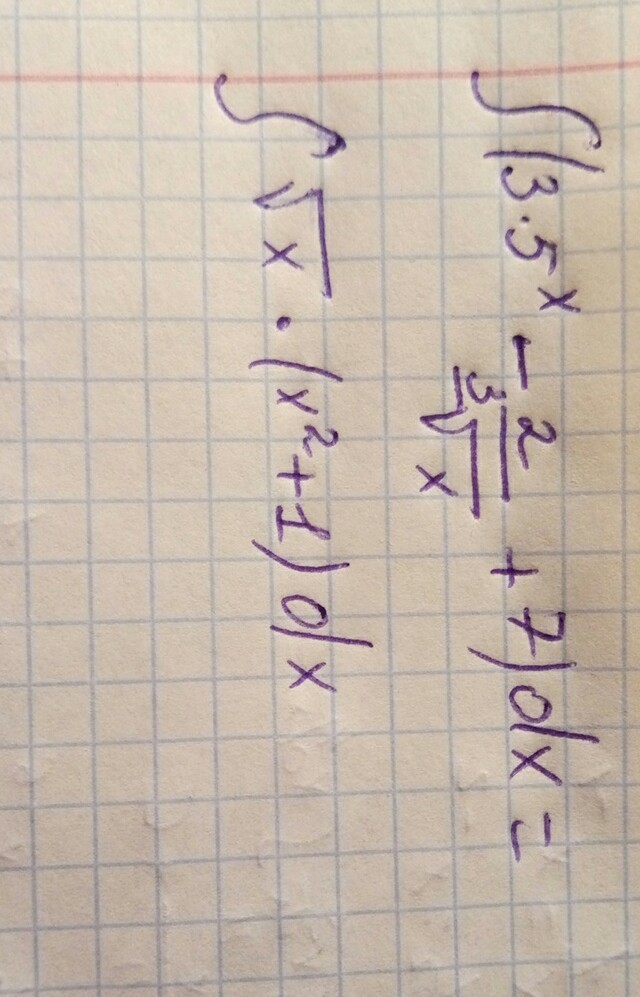 ∫(3·5^x - 2/∛x + 7)dx =
∫√x · (x² + 1)dx